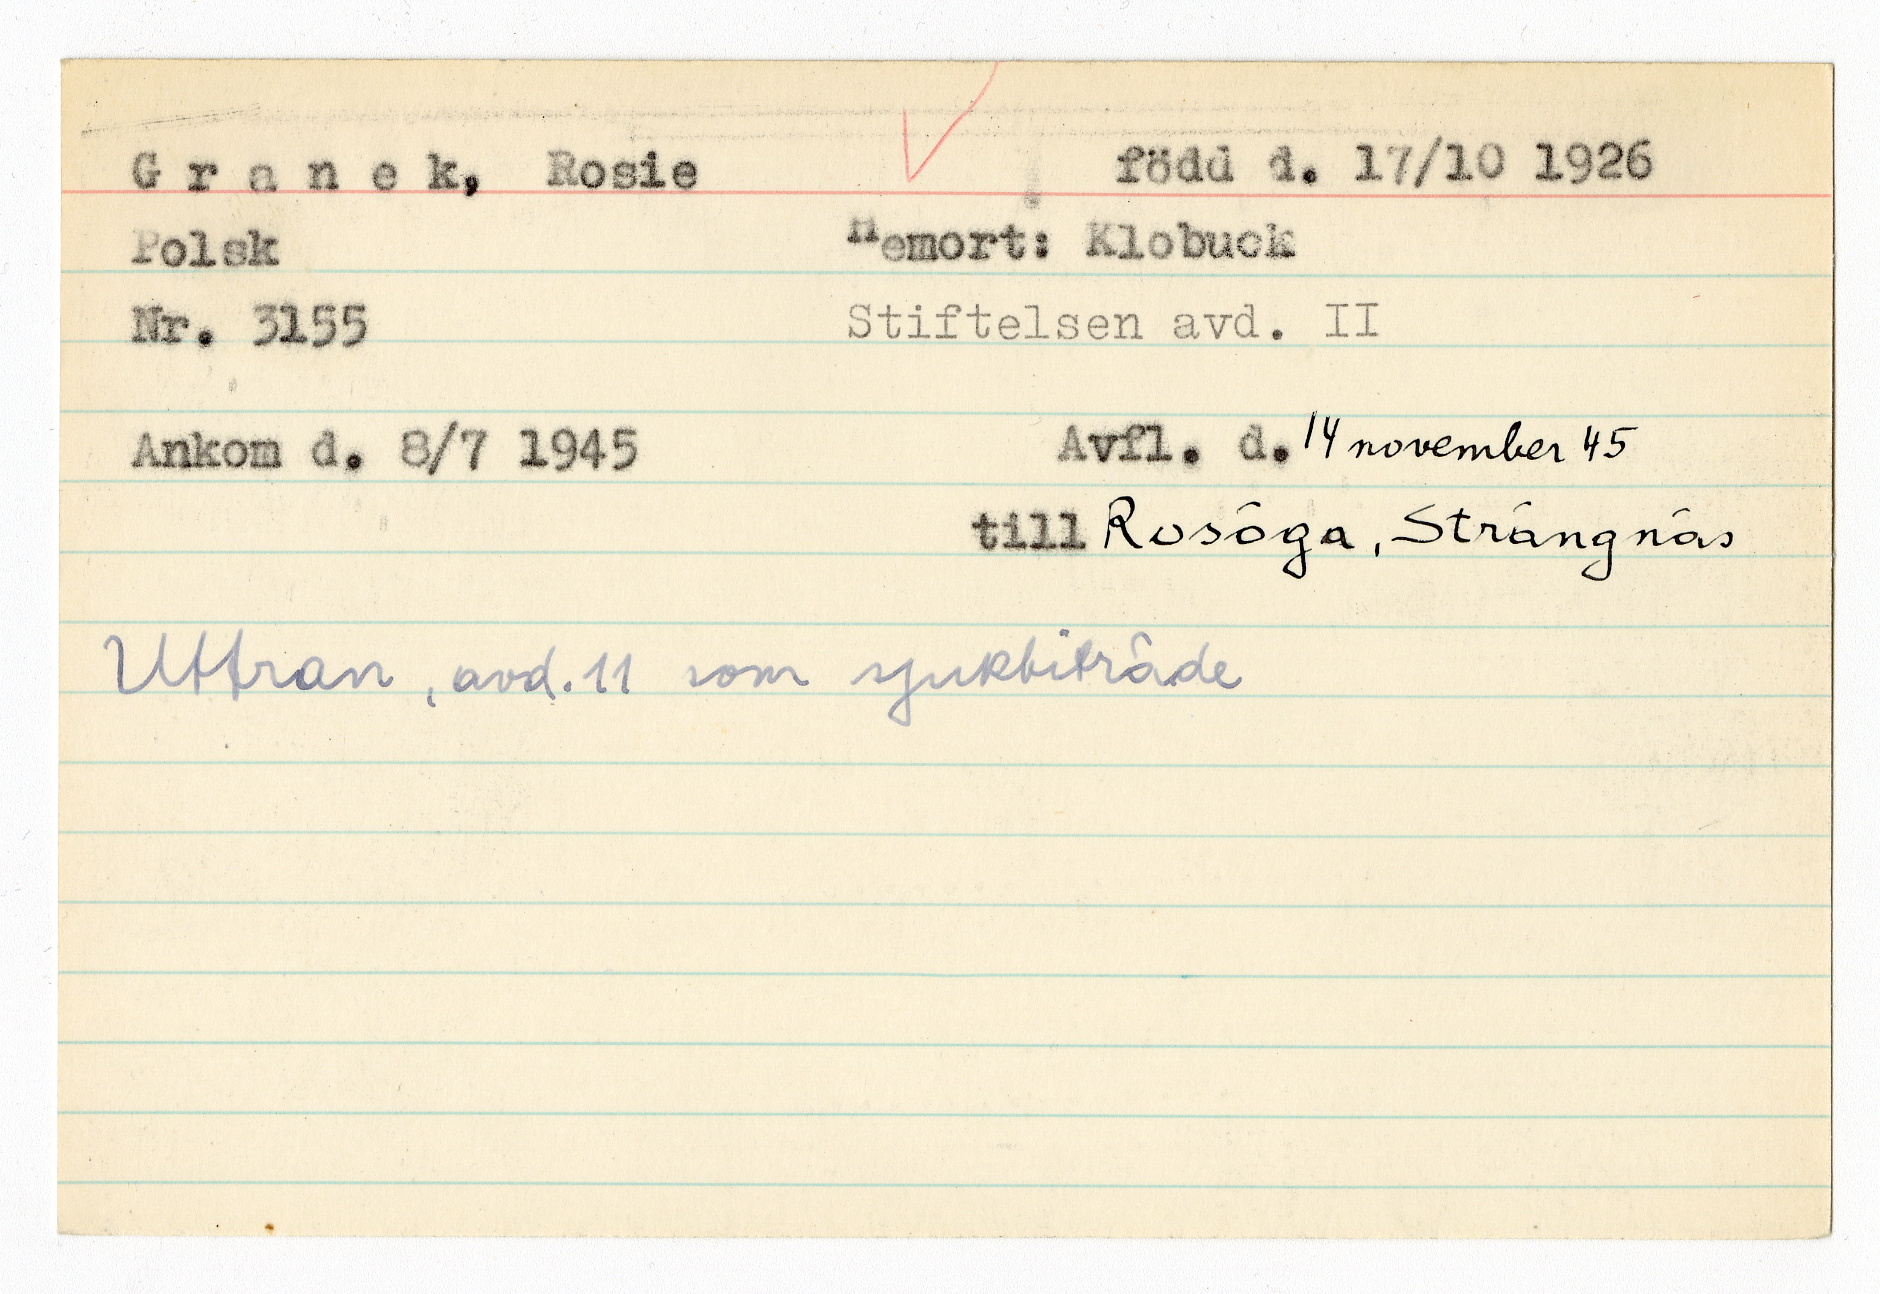 G r a n e k, Rosie född d. 17/10 1926
Polsk Hemort: Klobuck
Nr. 3155 Stiftelsen avd. II
Ankom d. 8/7 1945 Avfl. d. 14 november 45
till Rosöga, Strängnäs
Uttran, avd. 11 som sjukbiträde